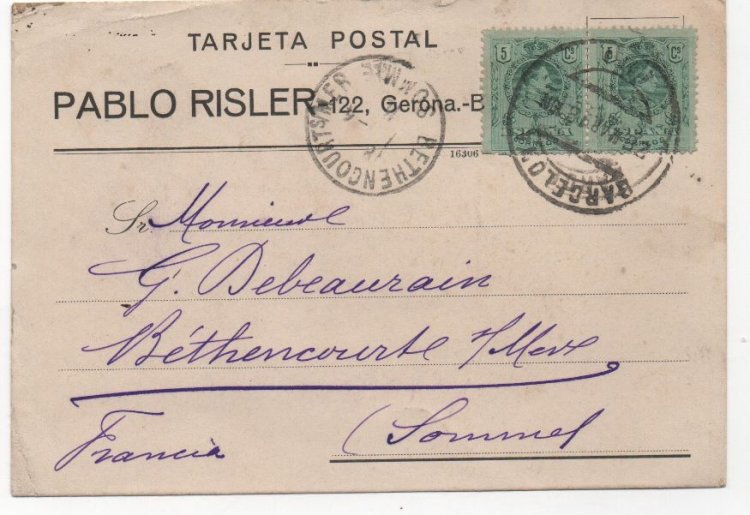 TARJETA POSTAL
PABLO RISLER-122, Gerona.-B
5 Cs 5 Cs
BETHENCOURT S/MER SOMME
BARCELO
16306
Sr. Monsieur
G. Debeaurain
Béthencourt s/Mer
Francia (Somme)